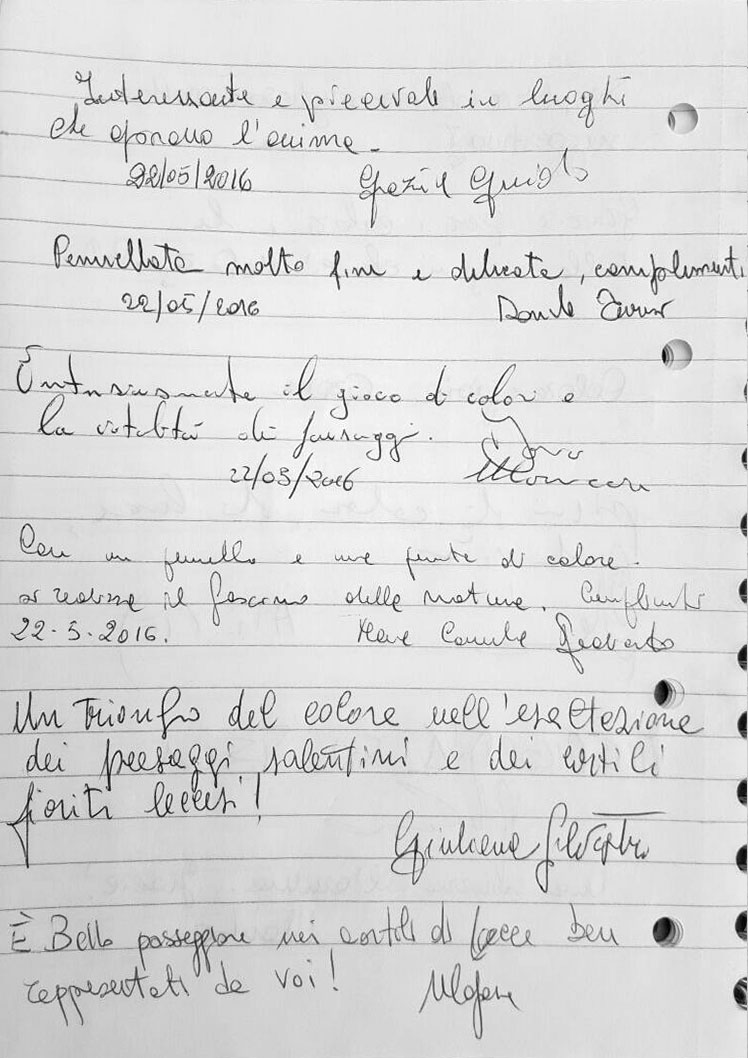 Interessante e piacevole in luoghi
che aprono l'anima -
22/05/2016
Pennellata molto fine e delicata, complimenti
22/05/2016
Entusiasmante il gioco di colori e
la vitalità di paesaggi.
22/05/2016
Con un pennello e una punta di colore.
si realizza il fascino della natura. Complimenti
22-5-2016. Roberto
Un trionfo del colore nell'esaltazione
dei paesaggi salentini e dei cortili
fioriti leccesi!
Giuliana Silvestro
È Bello passeggiare nei cortili di Lecce ben
rappresentati da voi!